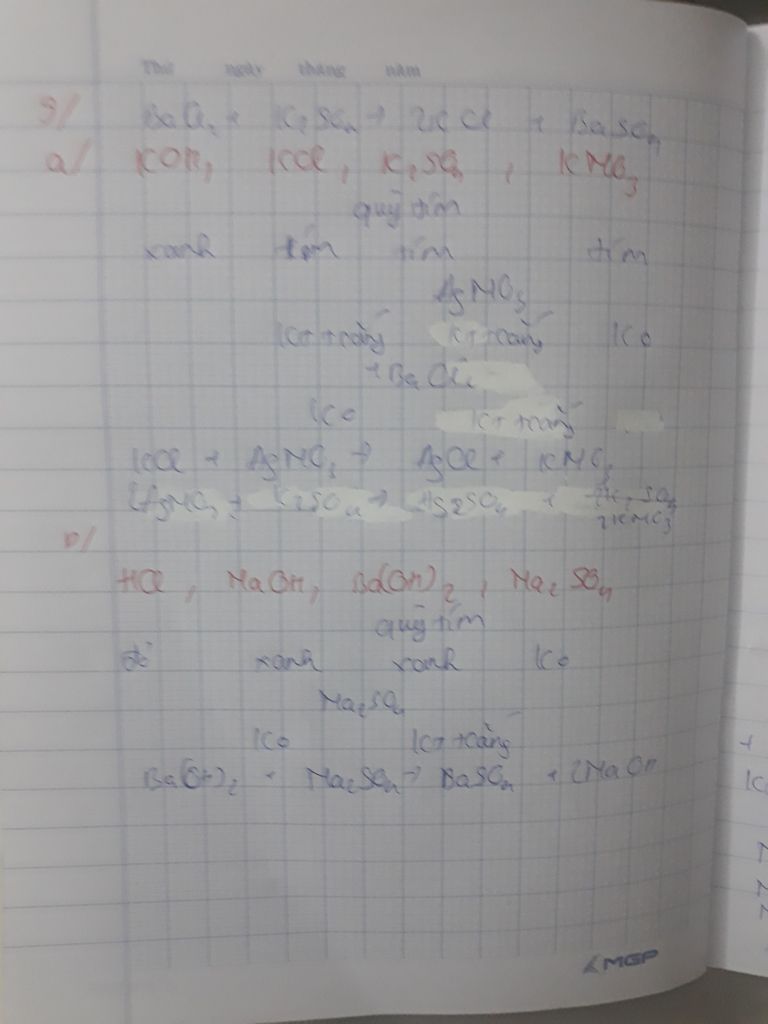 Thứ ngày tháng năm
9/ BaCl2 + K2SO4 → 2KCl + BaSO4
a/ KOH, KCl, K2SO4, KNO3
quỳ tím
xanh tím tím tím
AgNO3
KT trắng KT trắng Ko
+ BaCl2
Ko KT trắng
KCl + AgNO3 → AgCl + KNO3
2AgNO3 + K2SO4 → Ag2SO4 +
2KNO3
b/
HCl, NaOH, Ba(OH)2, Na2SO4
quỳ tím
đỏ xanh xanh Ko
Na2SO4
Ko KT trắng
Ba(OH)2 + Na2SO4 → BaSO4 + 2NaOH
MGP